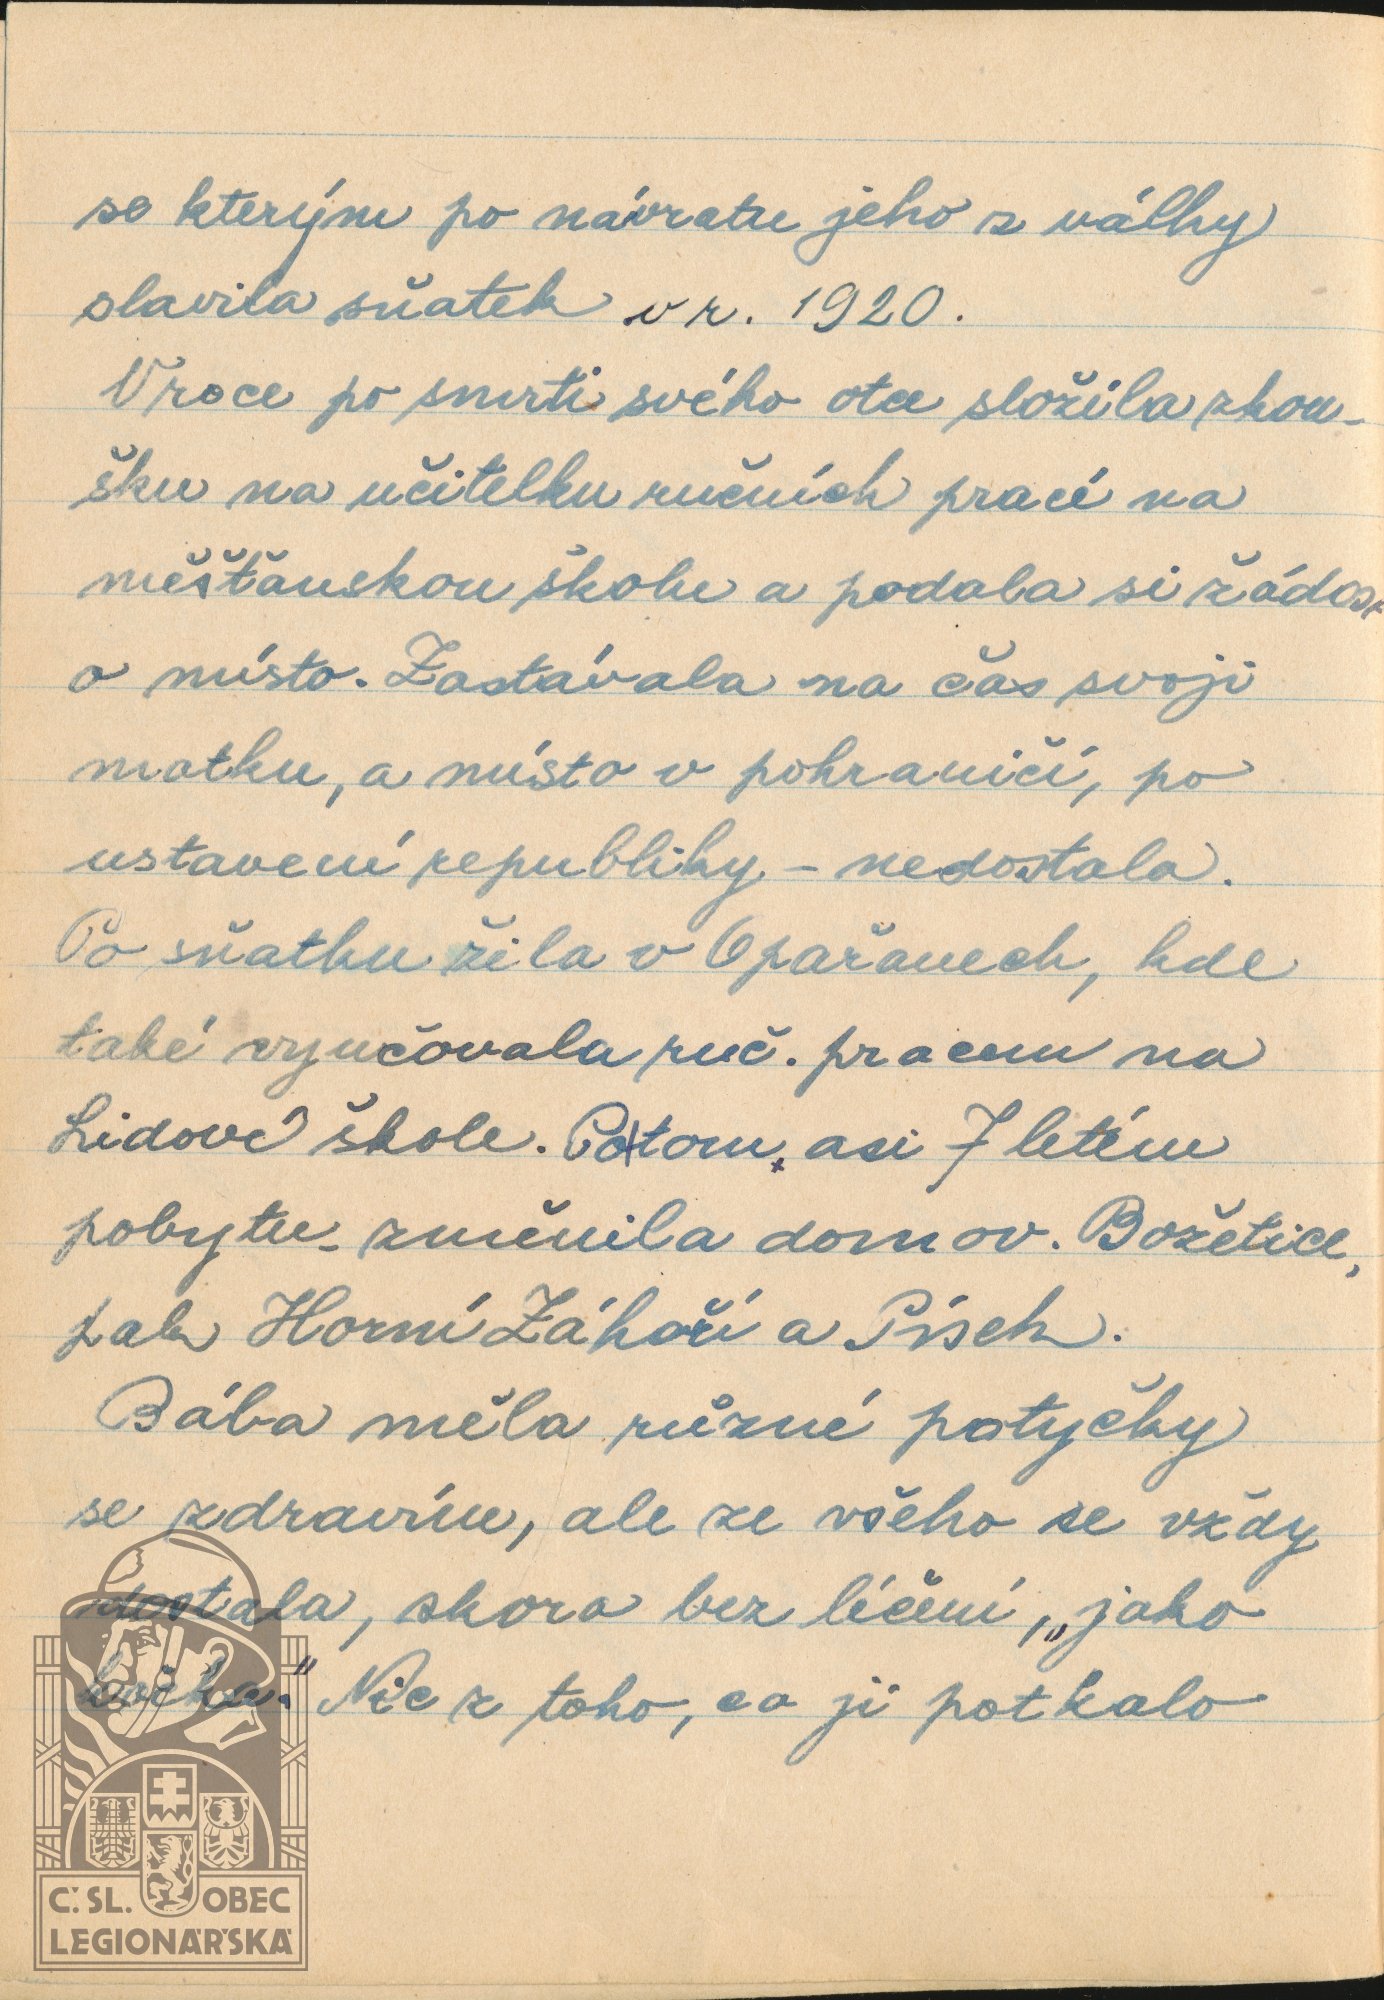 se kterým po návratu jeho z války
slavila sňatek v r. 1920.
V roce po smrti svého otce složila zkou-
šku na učitelku ručních prací na
měšťanskou školu a podala si žádost
o místo. Zastávala na čas svoji
matku, a místo v pohraničí, po
ustavení republiky – nedostala.
Po sňatku žila v Opařanech, kde
také vyučovala ruč. pracem na
Lidové škole. Potom, asi 7 letém
pobytu – změnila domov. Božetice,
pak Horní Záhoří a Písek.
Bába měla různé potyčky
se zdravím, ale ze všeho se vždy
dostala, skoro bez léčení, „jako
kočka." Nic z toho, co ji potkalo
Č. SL. OBEC
LEGIONÁŘSKÁ